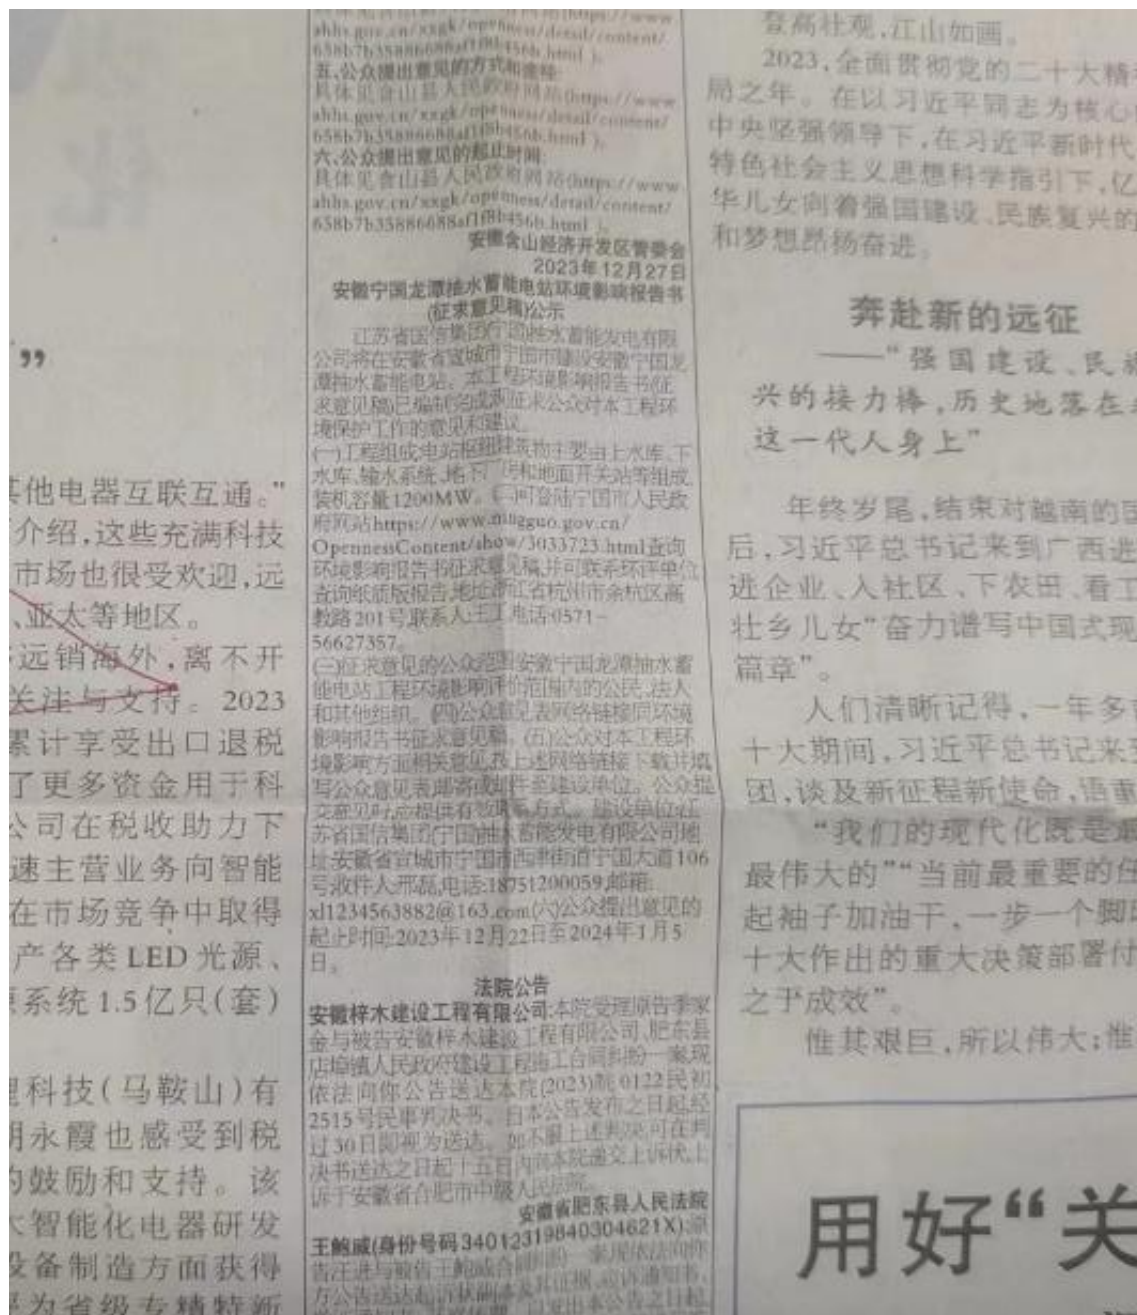 ”
其他电器互联互通。”
介绍,这些充满科技
市场也很受欢迎,远
、亚太等地区。
远销海外,离不开
关注与支持。2023
累计享受出口退税
了更多资金用于科
公司在税收助力下
速主营业务向智能
在市场竞争中取得
产各类LED光源、
系统1.5亿只(套)
科技(马鞍山)有
胡永霞也感受到税
的鼓励和支持。该
大智能化电器研发
设备制造方面获得
为省级专精特新
ahhs.gov.cn/xxgk/openness/detail/content/
658b7b35886688af1f8b456b.html )。
五、公众提出意见的方式和途径:
具体见含山县人民政府网站(https://www.
ahhs.gov.cn/xxgk/openness/detail/content/
658b7b35886688af1f8b456b.html )。
六、公众提出意见的起止时间:
具体见含山县人民政府网站(https://www.
ahhs.gov.cn/xxgk/openness/detail/content/
658b7b35886688af1f8b456b.html )。
安徽含山经济开发区管委会
2023年12月27日
安徽宁国龙潭抽水蓄能电站环境影响报告书
(征求意见稿)公示
江苏省国信集团(宁国)抽水蓄能发电有限
公司将在安徽省宣城市宁国市建设安徽宁国龙
潭抽水蓄能电站。本工程环境影响报告书(征
求意见稿)已编制完成,现征求公众对本工程环
境保护工作的意见和建议。
(一)工程组成:电站枢纽建筑物主要由上水库、下
水库、输水系统、地下厂房和地面开关站等组成,
装机容量1200MW。(二)可登陆宁国市人民政
府网站https://www.ningguo.gov.cn/
OpennessContent/show/3033723.html查询
环境影响报告书征求意见稿,并可联系环评单位
查询纸质版报告,地址:浙江省杭州市余杭区高
教路201号,联系人:王工,电话:0571-
56627357。
(三)征求意见的公众范围:安徽宁国龙潭抽水蓄
能电站工程环境影响评价范围内的公民、法人
和其他组织。(四)公众意见表网络链接同环境
影响报告书征求意见稿。(五)公众对本工程环
境影响方面相关意见,按上述网络链接下载并填
写公众意见表邮寄或邮件至建设单位。公众提
交意见时,应提供有效联系方式。建设单位:江
苏省国信集团(宁国)抽水蓄能发电有限公司,地
址:安徽省宣城市宁国市西津街道宁国大道106
号,收件人:邢磊,电话:18751200059,邮箱:
xl1234563882@163.com(六)公众提出意见的
起止时间:2023年12月22日至2024年1月5
日。
法院公告
安徽梓木建设工程有限公司:本院受理原告季家
金与被告安徽梓木建设工程有限公司、肥东县
店埠镇人民政府建设工程施工合同纠纷一案,现
依法向你公告送达本院(2023)皖0122民初
2515号民事判决书。自本公告发布之日起,经
过30日即视为送达。如不服上述判决,可在判
决书送达之日起十五日内向本院递交上诉状,上
诉于安徽省合肥市中级人民法院。
安徽省肥东县人民法院
王鲍威(身份号码34012319840304621X):原
告汪进与被告王鲍威合同纠纷一案,现依法向你
方公告送达起诉状副本及其证据、应诉通知书、
登高壮观,江山如画。
2023,全面贯彻党的二十大精
局之年。在以习近平同志为核心
中央坚强领导下,在习近平新时代
特色社会主义思想科学指引下,亿
华儿女向着强国建设、民族复兴的
和梦想昂扬奋进。
奔赴新的远征
——“强国建设、民族
兴的接力棒,历史地落在
这一代人身上”
年终岁尾,结束对越南的国
后,习近平总书记来到广西进
进企业、入社区、下农田、看工
壮乡儿女“奋力谱写中国式现
篇章”。
人们清晰记得,一年多
十大期间,习近平总书记来到
团,谈及新征程新使命,语重
“我们的现代化既是最
最伟大的”“当前最重要的任
起袖子加油干,一步一个脚印
十大作出的重大决策部署付
之于成效”。
惟其艰巨,所以伟大;惟
用好“关